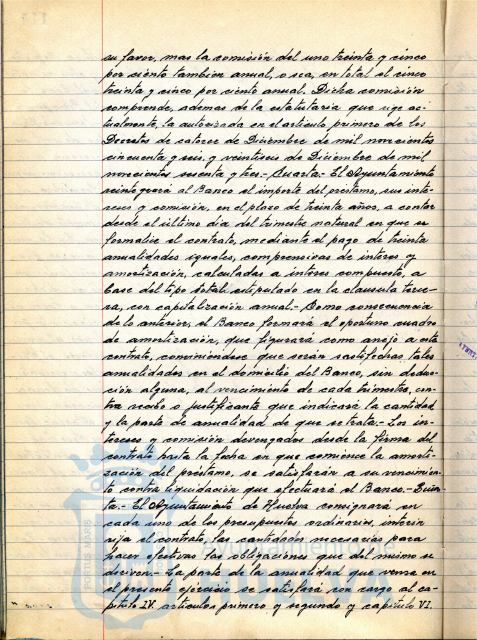 su favor, mas la comisión del uno treinta y cinco
por ciento tambien anual, o sea, en total el cinco
treinta y cinco por ciento anual. Dicha comisión
comprende, ademas de la estatutaria que rige ac-
tualmente, la autorizada en el artículo primero de los
Decretos de catorce de Diciembre de mil novecientos
cincuenta y seis y veintiseis de Diciembre de mil
novecientos sesenta y tres.- Cuarta.- El Ayuntamiento
reintegrará al Banco el importe del préstamo, sus inte-
reses y comisión, en el plazo de treinta años, a contar
desde el último día del trimestre natural en que se
formalice el contrato, mediante el pago de treinta
anualidades iguales, comprensivas de interes y
amortización, calculadas a interes compuesto, a
base del tipo total estipulado en la clausula terce-
ra, con capitalización anual.- Como consecuencia
de lo anterior, el Banco formará el oportuno cuadro
de amortización, que figurará como anejo a este
contrato, conviniéndose que serán sastifechas tales
anualidades en el domicilio del Banco, sin deduc-
ción alguna, al vencimiento de cada trimestre, con-
tra recibo o justificante que indicará la cantidad
y la parte de anualidad de que se trata.- Los in-
tereses y comisión devengados desde la firma del
contrato hasta la fecha en que comience la amorti-
zación del préstamo, se satisfarán a su vencimien-
to contra liquidación que efectuará el Banco.- Quin-
ta.- El Ayuntamiento de Huelva consignará en
cada uno de los presupuestos ordinarios, interin
rija el contrato, las cantidades necesarias para
hacer efectivas las obligaciones que del mismo se
deriven.- La parte de la anualidad que venza en
el presente ejercicio se satisfará con cargo al ca-
pitulo IV. artículos primero y segundo y capitulo VI.